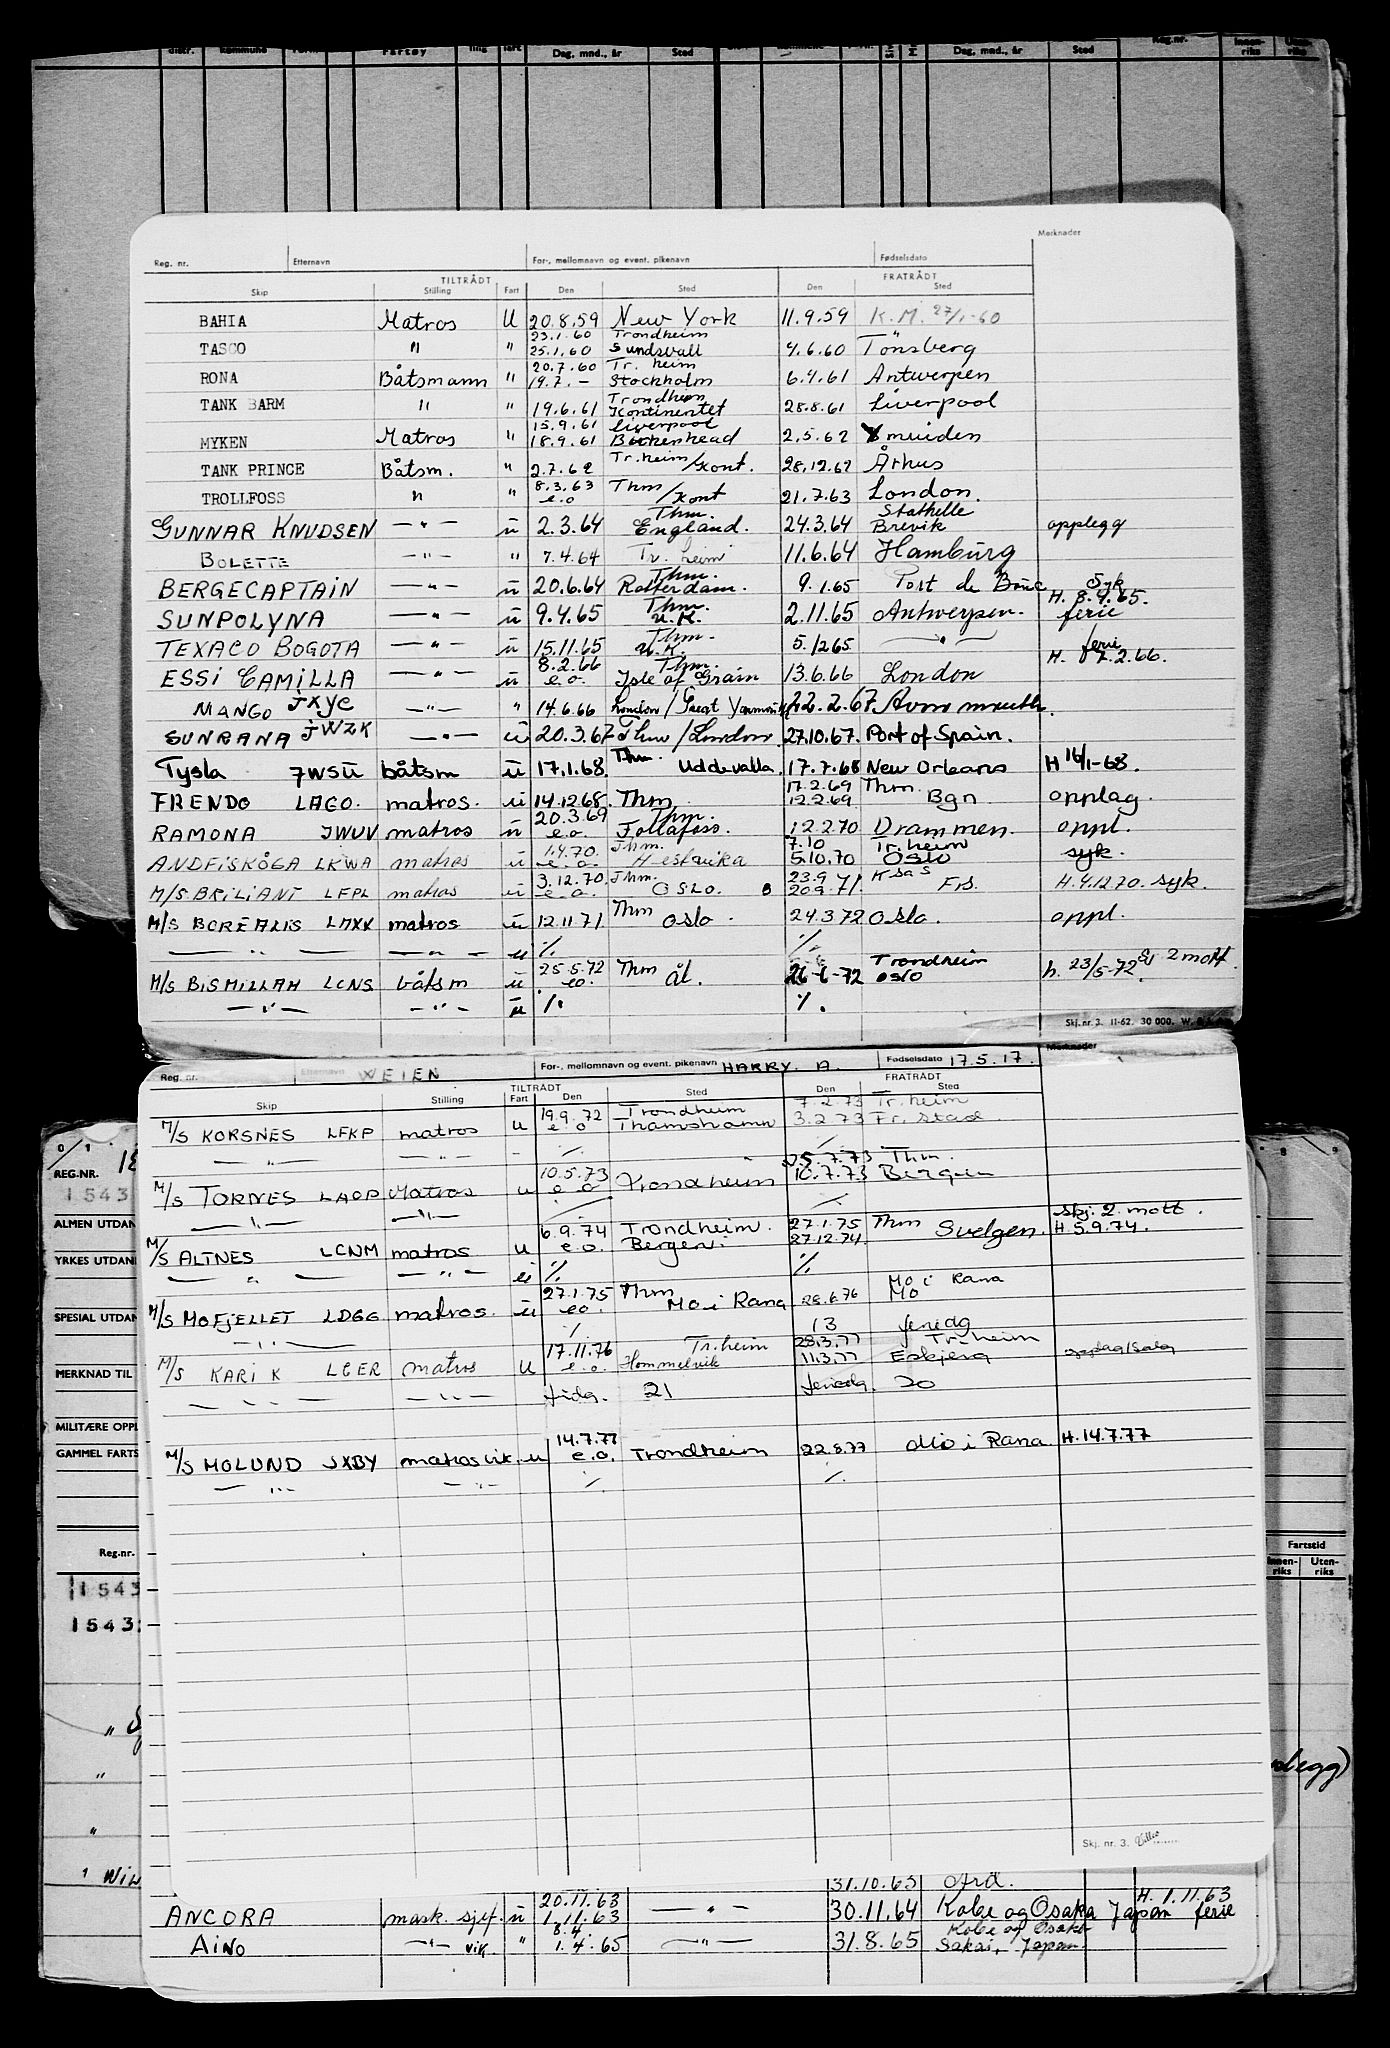 distr. Kommune Fartøy Dag, mnd., år Sted Dag, mnd., år Sted Reg.nr. Innen-riks Uten-riks
Merknader
Reg. nr. Etternavn For-, mellomnavn og event. pikenavn Fødselsdato
TILTRÅDT FRATRÅDT
Skip Stilling Fart Den Sted Den Sted
BAHIA Matros U 20.8.59 New York 11.9.59 K.M. 27/1-60
23.1.60 Trondheim "
TASCO " " 25.1.60 Sundsvall 4.6.60 Tønsberg
20.7.60 Tr. heim
RONA Båtsmann " 19.7. - Stockholm 6.4.61 Antwerpen
Trondheim
TANK BARM " " 19.6.61 Kontinentet 28.8.61 Liverpool
15.9.61 Liverpool
MYKEN Matros " 18.9.61 Birkenhead 2.5.62 Ymuiden
TANK PRINCE Båtsm. " 2.7.62 Tr.heim /Kont. 28.12.62 Århus
8.3.63 Thm
TROLLFOSS " " e.o /Kont 21.7.63 London.
Thm. Stathelle
GUNNAR KNUDSEN — " — ü 2.3.64 England. 24.3.64 Brevik opplegg
BOLETTE — " — " 7.4.64 Tr. heim 11.6.64 Hamburg
Thm. Syk
BERGECAPTAIN — " — ü 20.6.64 Rotterdam. 9.1.65 Port de Bouc H. 8.4.65.
Thm.
SUNPOLYNA — " — ü 9.4.65 U.K. 2.11.65 Antwerpen. ferie
Thm. ferie
TEXACO BOGOTA — " — ü 15.11.65 U.K. 5.1265 — " — H. 7.2.66.
8.2.66 Thm.
ESSI CAMILLA — " — ü e.o. Isle of Grain 13.6.66 London
MANGO JXYC — " — " 14.6.66 London / Great Yarmouth 22.2.67. Avonmouth
SUNRANA JWZK — " — ü 20.3.67 Thm /London 27.10.67. Port of Spain.
Tysla JWSU båtsm ü 17.1.68. Thm. Uddevalla. 17.7.68 New Orleans H 16/1-68.
17.2.69 Thm.
FRENDO LAGO. matros. ü 14.12.68. Thm 12.2.69 Bgn opplag.
20.3.69 Thm.
RAMONA JWUV matros ü e.o. Follafoss. 12.2.70 Drammen. oppl.
1.4.70. Thm. 7.10 Tr.heim
ANDFISKÅGA LKWA matros ü e.o. Hestvika 5.10.70 Oslo syk.
3.12.70. Thm. 23.9 Ksa S
M/S BRILIANT LFPL matros ü e.o. OSLO. 20.9.71. Frs. H.4.12.70. syk.
M/S BOREALIS LAXK matros ü 12.11.71 Thm oslo. 24.3.72 oslo. oppl.
— " — — " — ü ٪ ٪
25.5.72 Trondheim
M/S BISMILLAH LCNS båtsm ü e.o. Thm Ål. 26-6-72 oslo h. 23/5-72 skj 2 mott.
— " — — " — ü ٪ ٪.
Skj. nr. 3. 11-62. 30 000.
Reg. nr. Etternavn WEIEN For-, mellomnavn og event. pikenavn HARRY. A. Fødselsdato 17.5.17. Merknader
TILTRÅDT FRATRÅDT
Skip Stilling Fart Den Sted Den Sted
19.9.72 Trondheim 7.2.73 Tr.heim
M/S KORSNES LFKP matros u e.o Thamshamn 3.2.73 Fr.stad
— " — — " — - ٪ ٪
10.5.73 25.7.73 Thm.
M/S TORNES LAOP Matros u e.o Trondheim 10.7.73 Bergen
— " — — " — ٪ ٪
6.9.74 Trondheim. 27.1.75 Thm skj. 2 mott.
M/S ALTNES LCNM matros u e.o. Bergen 27.12.74. Svelgen. H.5.9.74.
— " — — " — ü ٪ ٪
27.1.75 Thm Mo i Rana
M/S MOFJELLET LDGG matros. ü e.o. Mo i Rana 28.6.76 Mo
— " — ٪ 13 feriedg
17.11.76 Tr.heim 28.3.77 Tr.heim
M/S KARI K LGER matros u e.o. Hommelvik 11.3.77 Esbjerg opplag/salg
— " — — " — fridg. 21 feriedg. 20
14.7.77
M/S MOLUND JXBY matros vik. u e.o. Trondheim 22.8.77 Mo i Rana H.14.7.77
— " — — " — ٪ ٪
Skj. nr. 3.
0 1 8 9
REG.NR.
1543
ALMEN UTDAN
YRKES UTDAN
SPESIAL UTDAN
MERKNAD TIL
MILITÆRE OPPL
GAMMEL FARTS
Reg.nr. Fartstid
Innen-riks Uten-riks
1543
1543
legg)
31.10.63 Ard.
20.11.63 H. 1.11.63
ANCORA mask. sjef. ü 1.11.63 — " — 30.11.64 Kobe og Osaka Japan ferie
8.4. Kobe og Osaka
AINO — " — vik. " 1.4.65 — " — 31.8.65 Sakai, Japan